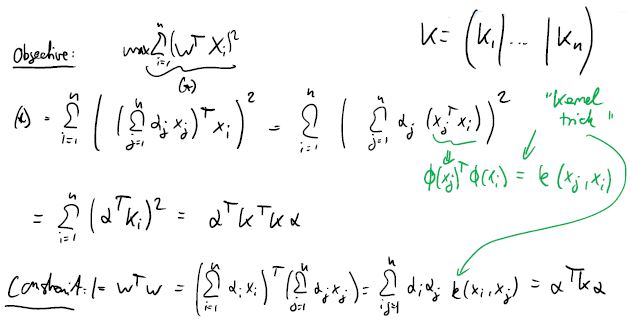 Objective: max Σ_{i=1}^{n} (w^T x_i)^2   K = (k_1 | ... | k_n)
(*)
(*) = Σ_{i=1}^{n} ( ( Σ_{j=1}^{n} α_j x_j )^T x_i )^2 = Σ_{i=1}^{n} ( Σ_{j=1}^{n} α_j (x_j^T x_i) )^2   "Kernel trick"
ϕ(x_j)^T ϕ(x_i) = k(x_j, x_i)
= Σ_{i=1}^{n} (α^T k_i)^2 = α^T K^T K α
Constraint: 1 = w^T w = ( Σ_{i=1}^{n} α_i x_i )^T ( Σ_{j=1}^{n} α_j x_j ) = Σ_{i,j=1}^{n} α_i α_j k(x_i, x_j) = α^T K α